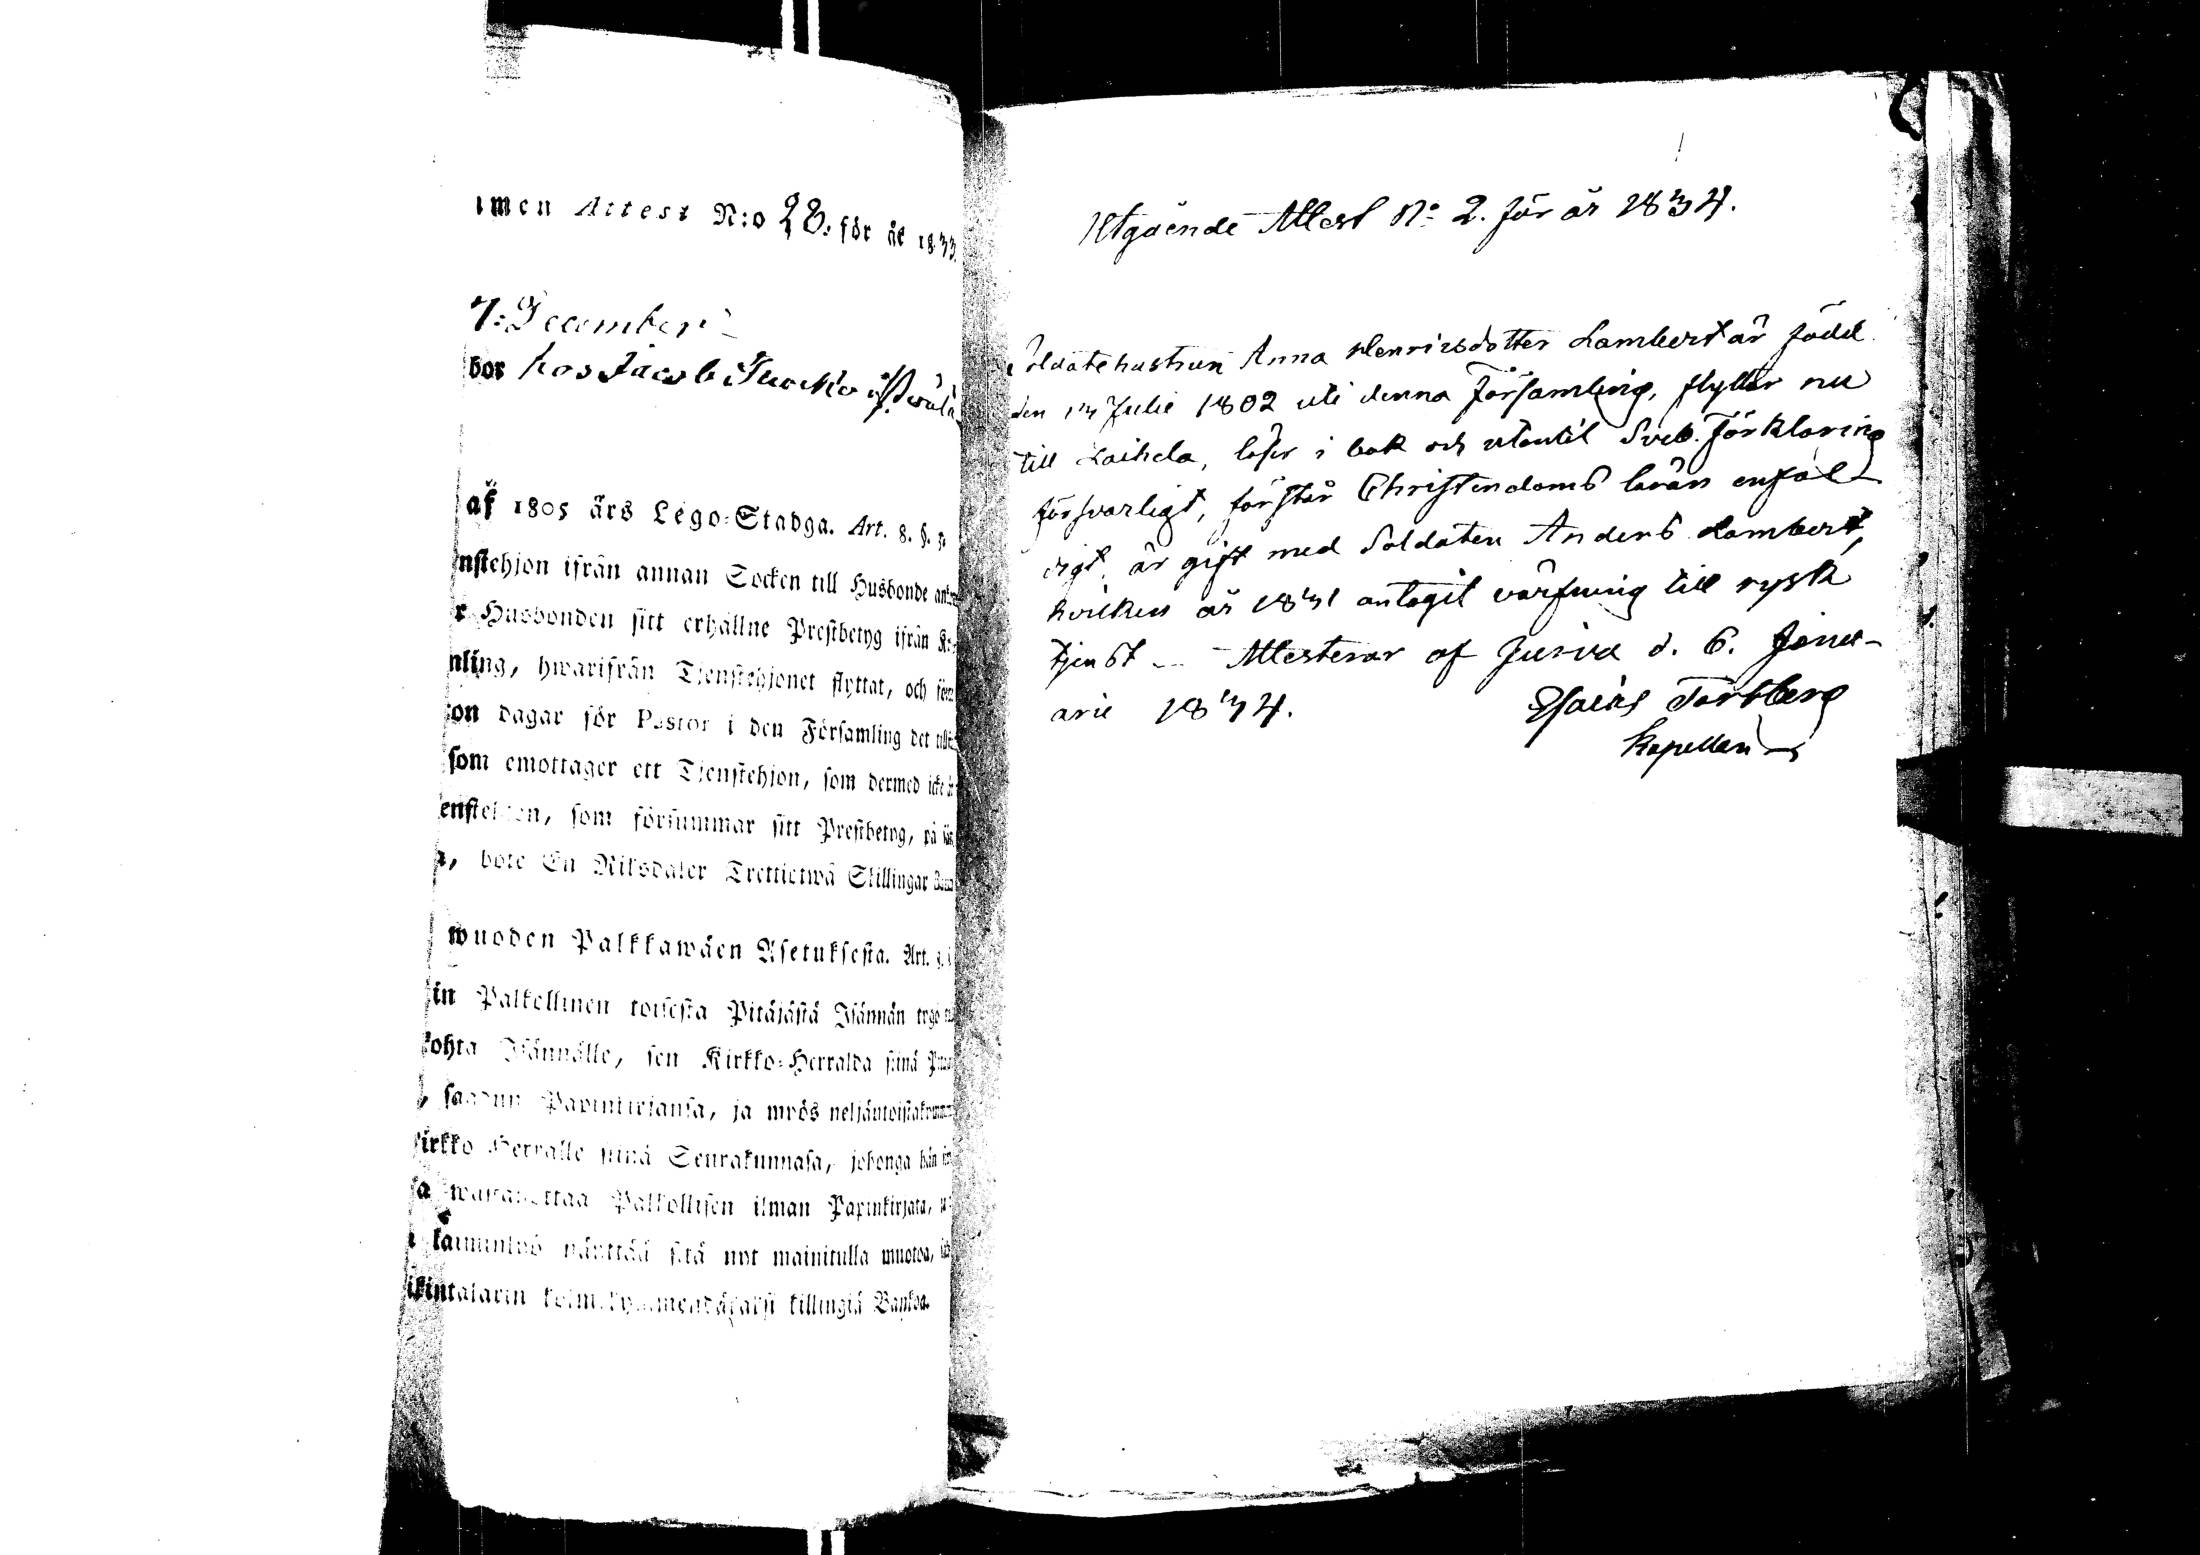 Attest N:o 28. för år 1833.
7: December
bor hos Jacob
af 1805 års Lego-Stadga. Art. 8. §.
nstehjon ifrån annan Socken till Husbonde
r Husbonden sitt erhållne Prestbetyg ifrån
nling, hwarifrån Tjenstehjonet flyttat, och
ton dagar för Pastor i den Församling det
som emottager ett Tjenstehjon, som dermed icke
som försummar sitt Prestbetyg, på
bote En Riksdaler Trettietwå Skillingar
wuoden Palkkawäen Asetuksesta. Art.
in Palkollinen toisesta Pitäjästä Isännän tygö
kohta Isännälle, sen Kirkko-Herralda siinä
saadun Papinkirjansa, ja myös
irkko Herralle siinä Seurakunnasa, johonga hän
Palkollisen ilman Papinkirjata,
näyttää sitä nyt mainitulla muotoa,
killingiä Bankoa.
Utgående Attest No 2. för år 1834.
Soldatehustrun Anna Henricsdotter Lambert är född
den 13 Julii 1802 uti denna Församling, flyttar nu
till Laihela, läser i bok och utantil Sveb. Förklaring
försvarligt, förstår Christendoms läran enfal-
digt, är gift med Soldaten Anders Lambert,
hvilken år 1831 antagit värfning till rysk
tjenst -- Attesterar af Jurva d. 6. Janu-
arii 1834.
Esaias
Kapellan